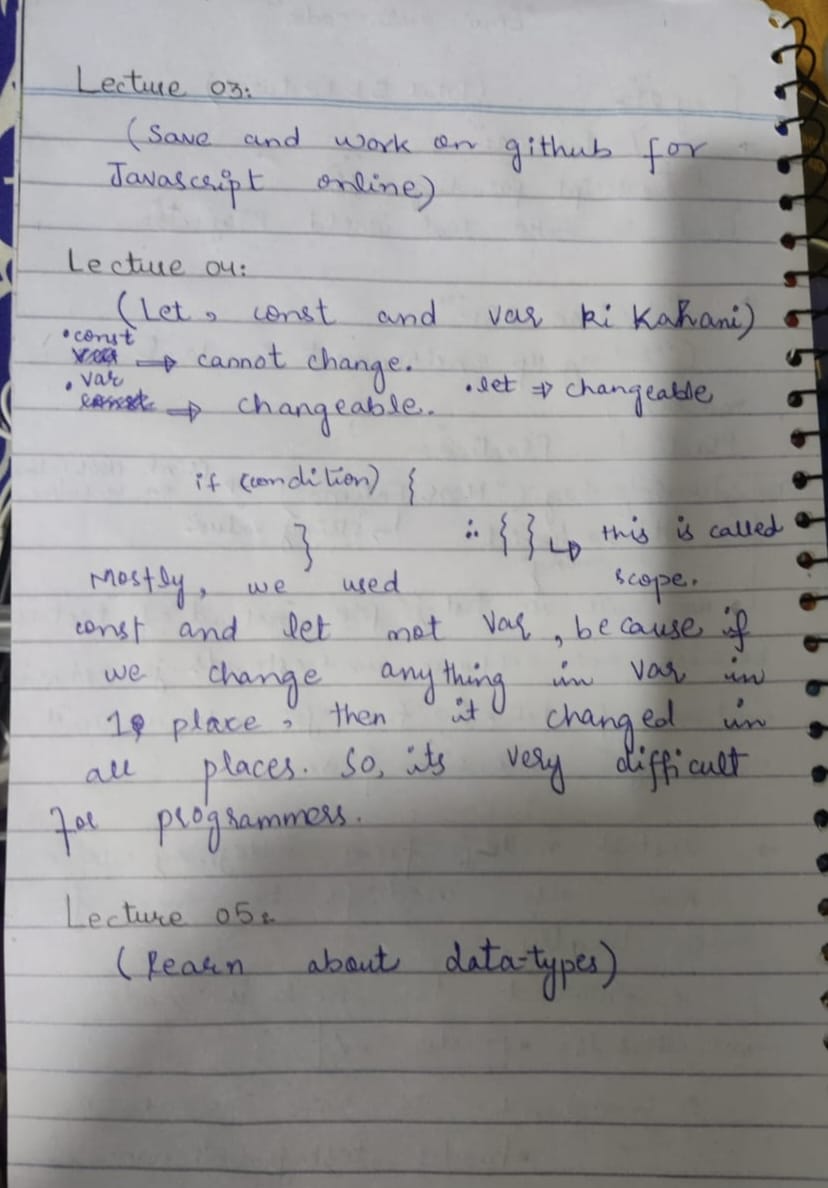 Lecture 03:
(Save and work on github for
Javascript online)
Lecture 04:
(Let, const and var ki kahani)
• const
⇒ cannot change.
• var
⇒ changeable. • let ⇒ changeable
if (condition) {
} ∴ { } ↳ this is called
scope.
Mostly, we used
const and let not var, because if
we change anything in var in
1 place, then it changed in
all places. So, its very difficult
for programmers.
Lecture 05:
(learn about data-types)